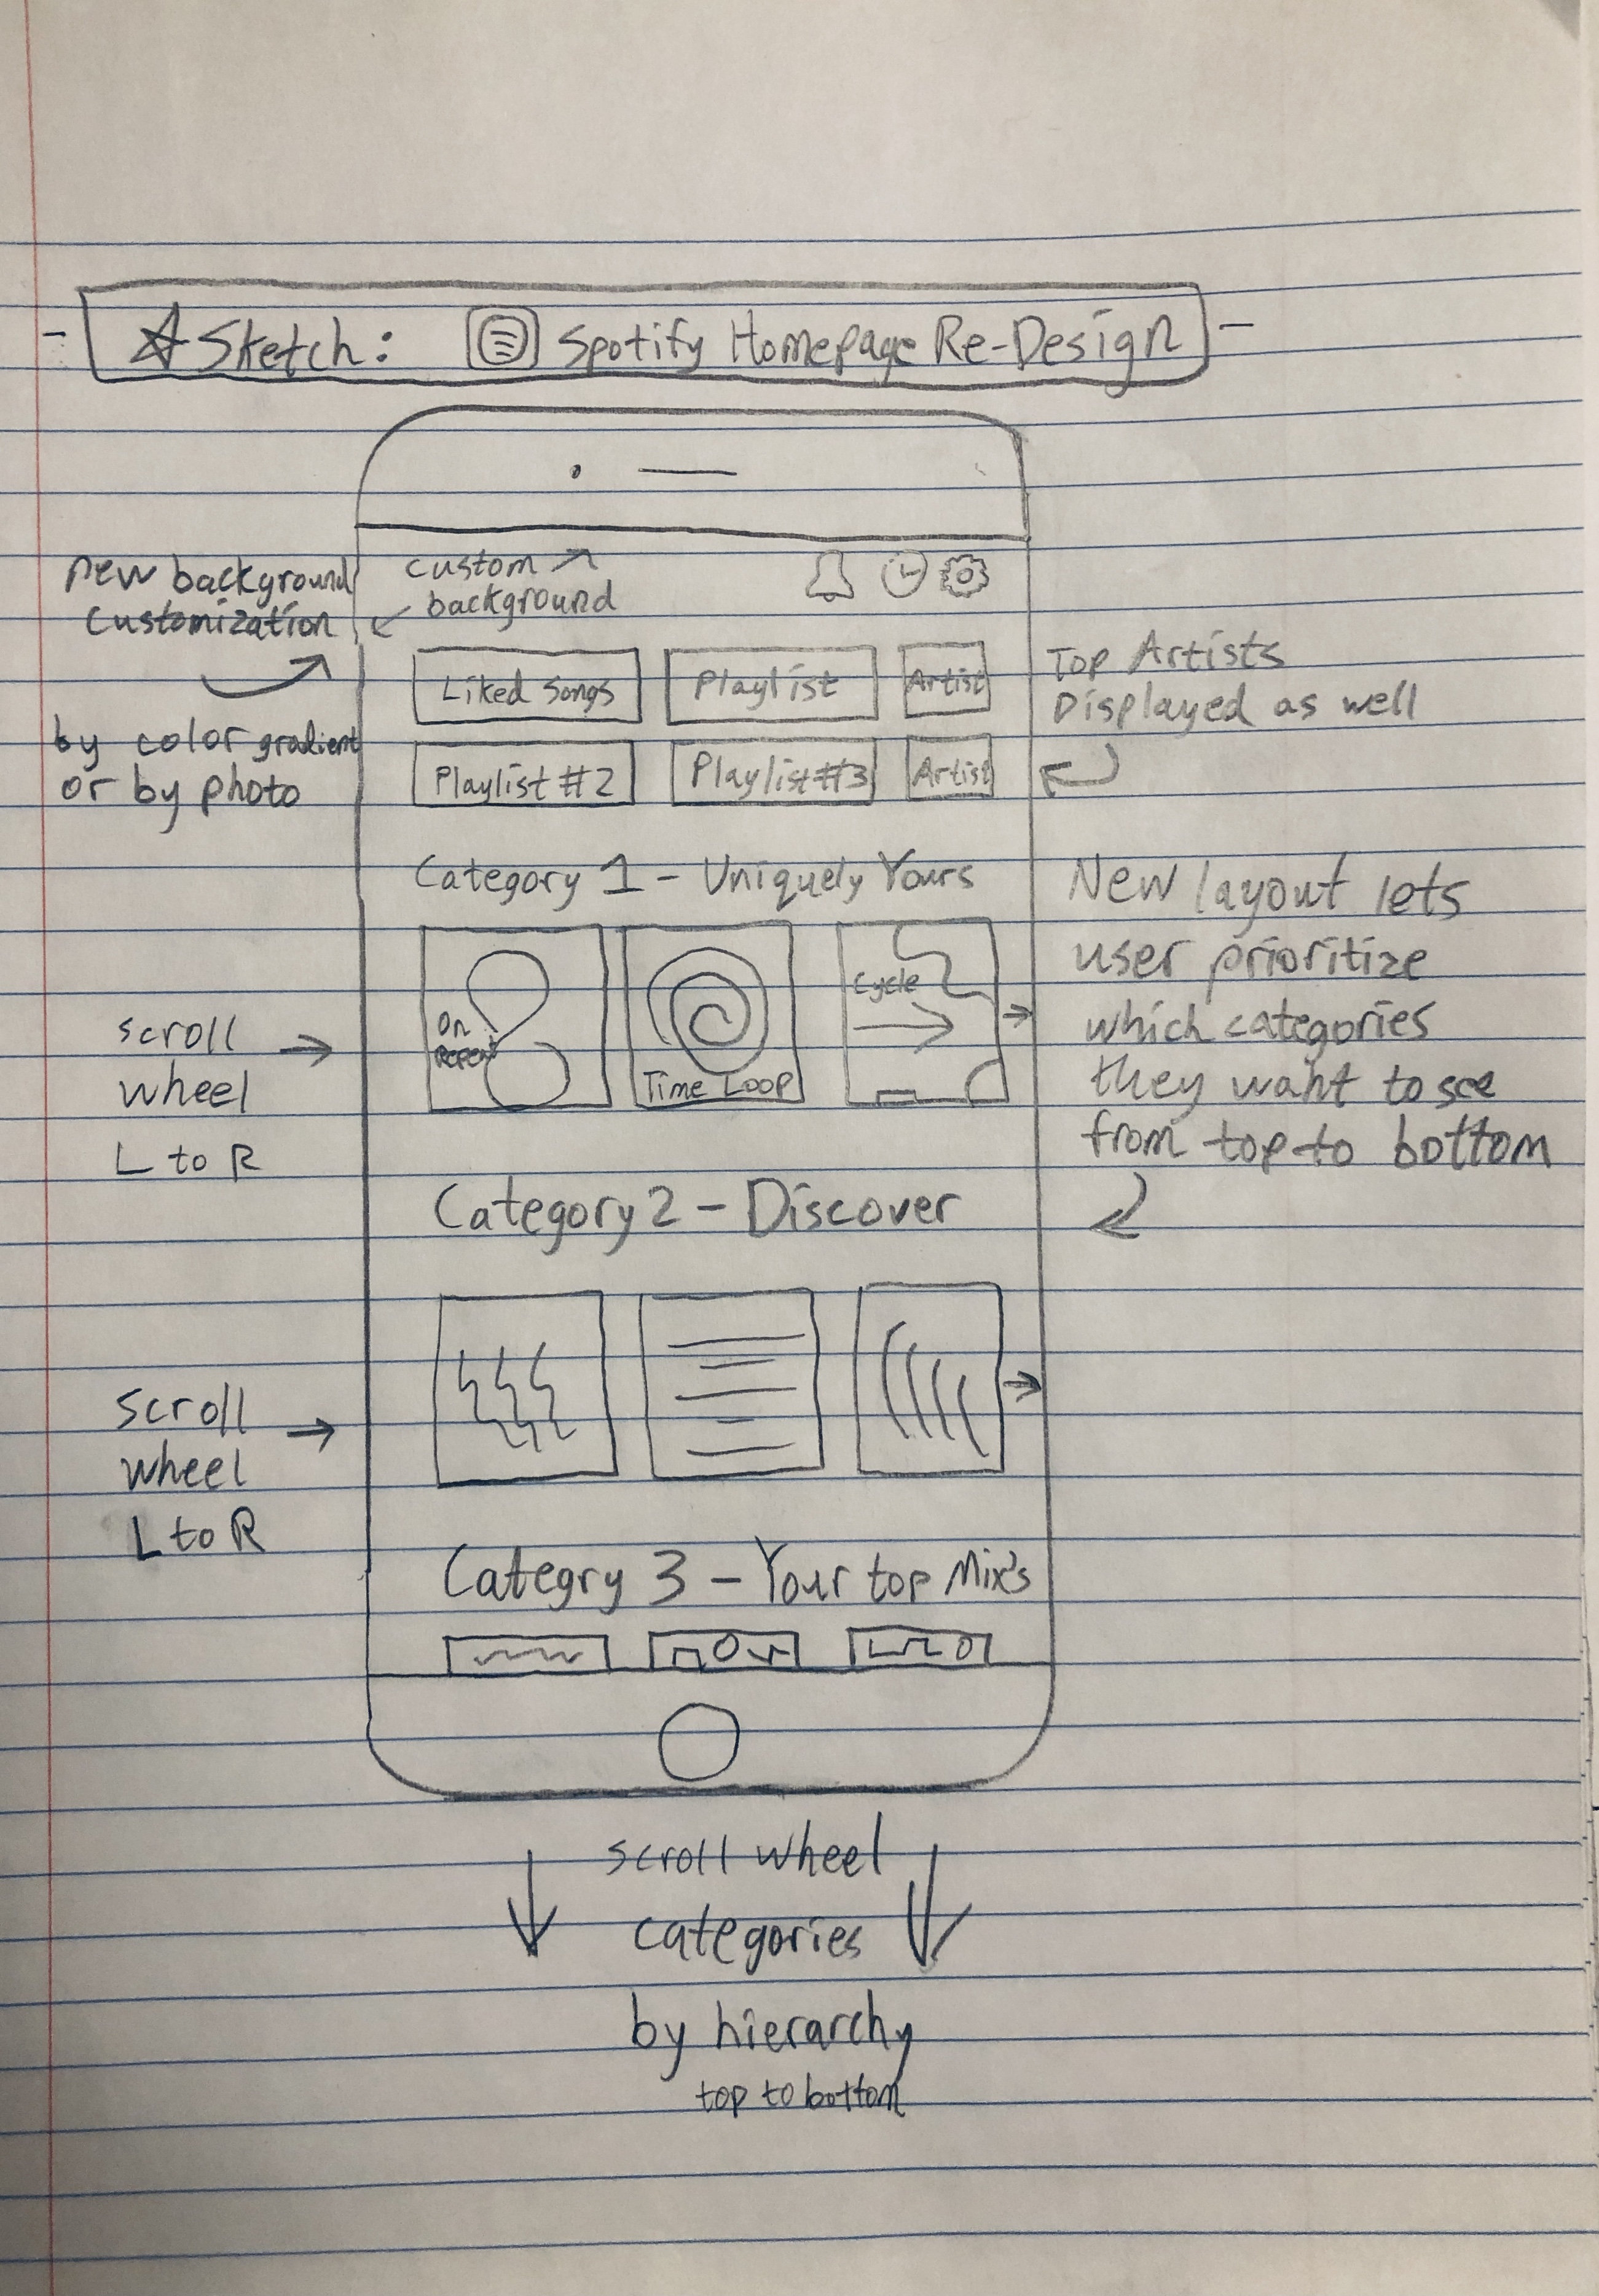 Sketch: Spotify Homepage Re-Design
new background
customization
by color gradient
or by photo
custom
background
Liked Songs
Playlist
Artist
Playlist #2
Playlist #3
Artist
Top Artists
Displayed as well
Category 1 - Uniquely Yours
On
Repeat
Time Loop
Cycle
scroll
wheel
L to R
New layout lets
user prioritize
which categories
they want to see
from top to bottom
Category 2 - Discover
scroll
wheel
L to R
Categry 3 - Your top Mix's
scroll wheel
categories
by hierarchy
top to bottom